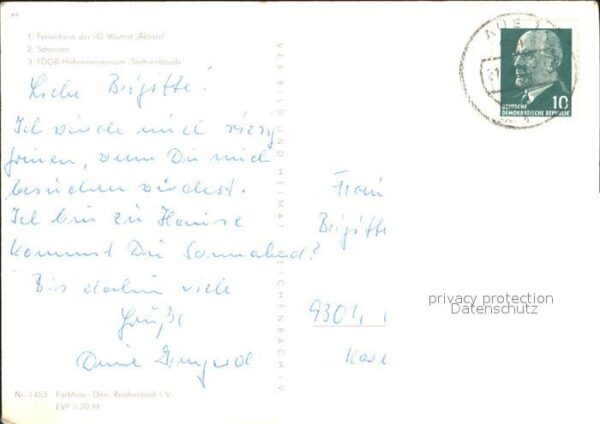 1. Ferienheim der IG Wismut „Aktivist"
2. Schanzen
3. FDGB-Höhensanatorium „Sachsenbaude"
Liebe Brigitte!
Ich würde mich riesig
freuen, wenn Du mich
besuchen würdest.
Ich bin zu Hause
kommst Du Sonnabend?
Bis dahin viele
Grüße
Deine Irmgard
Nr. 1453 Farbfoto: Darr, Reichenbach i. V.
EVP 0,20 M
VEB BILD UND HEIMAT REICHENBACH i. V
AUE 1
DEUTSCHE
DEMOKRATISCHE REPUBLIK
10
Frau
Brigitte
9301,
privacy protection
Datenschutz